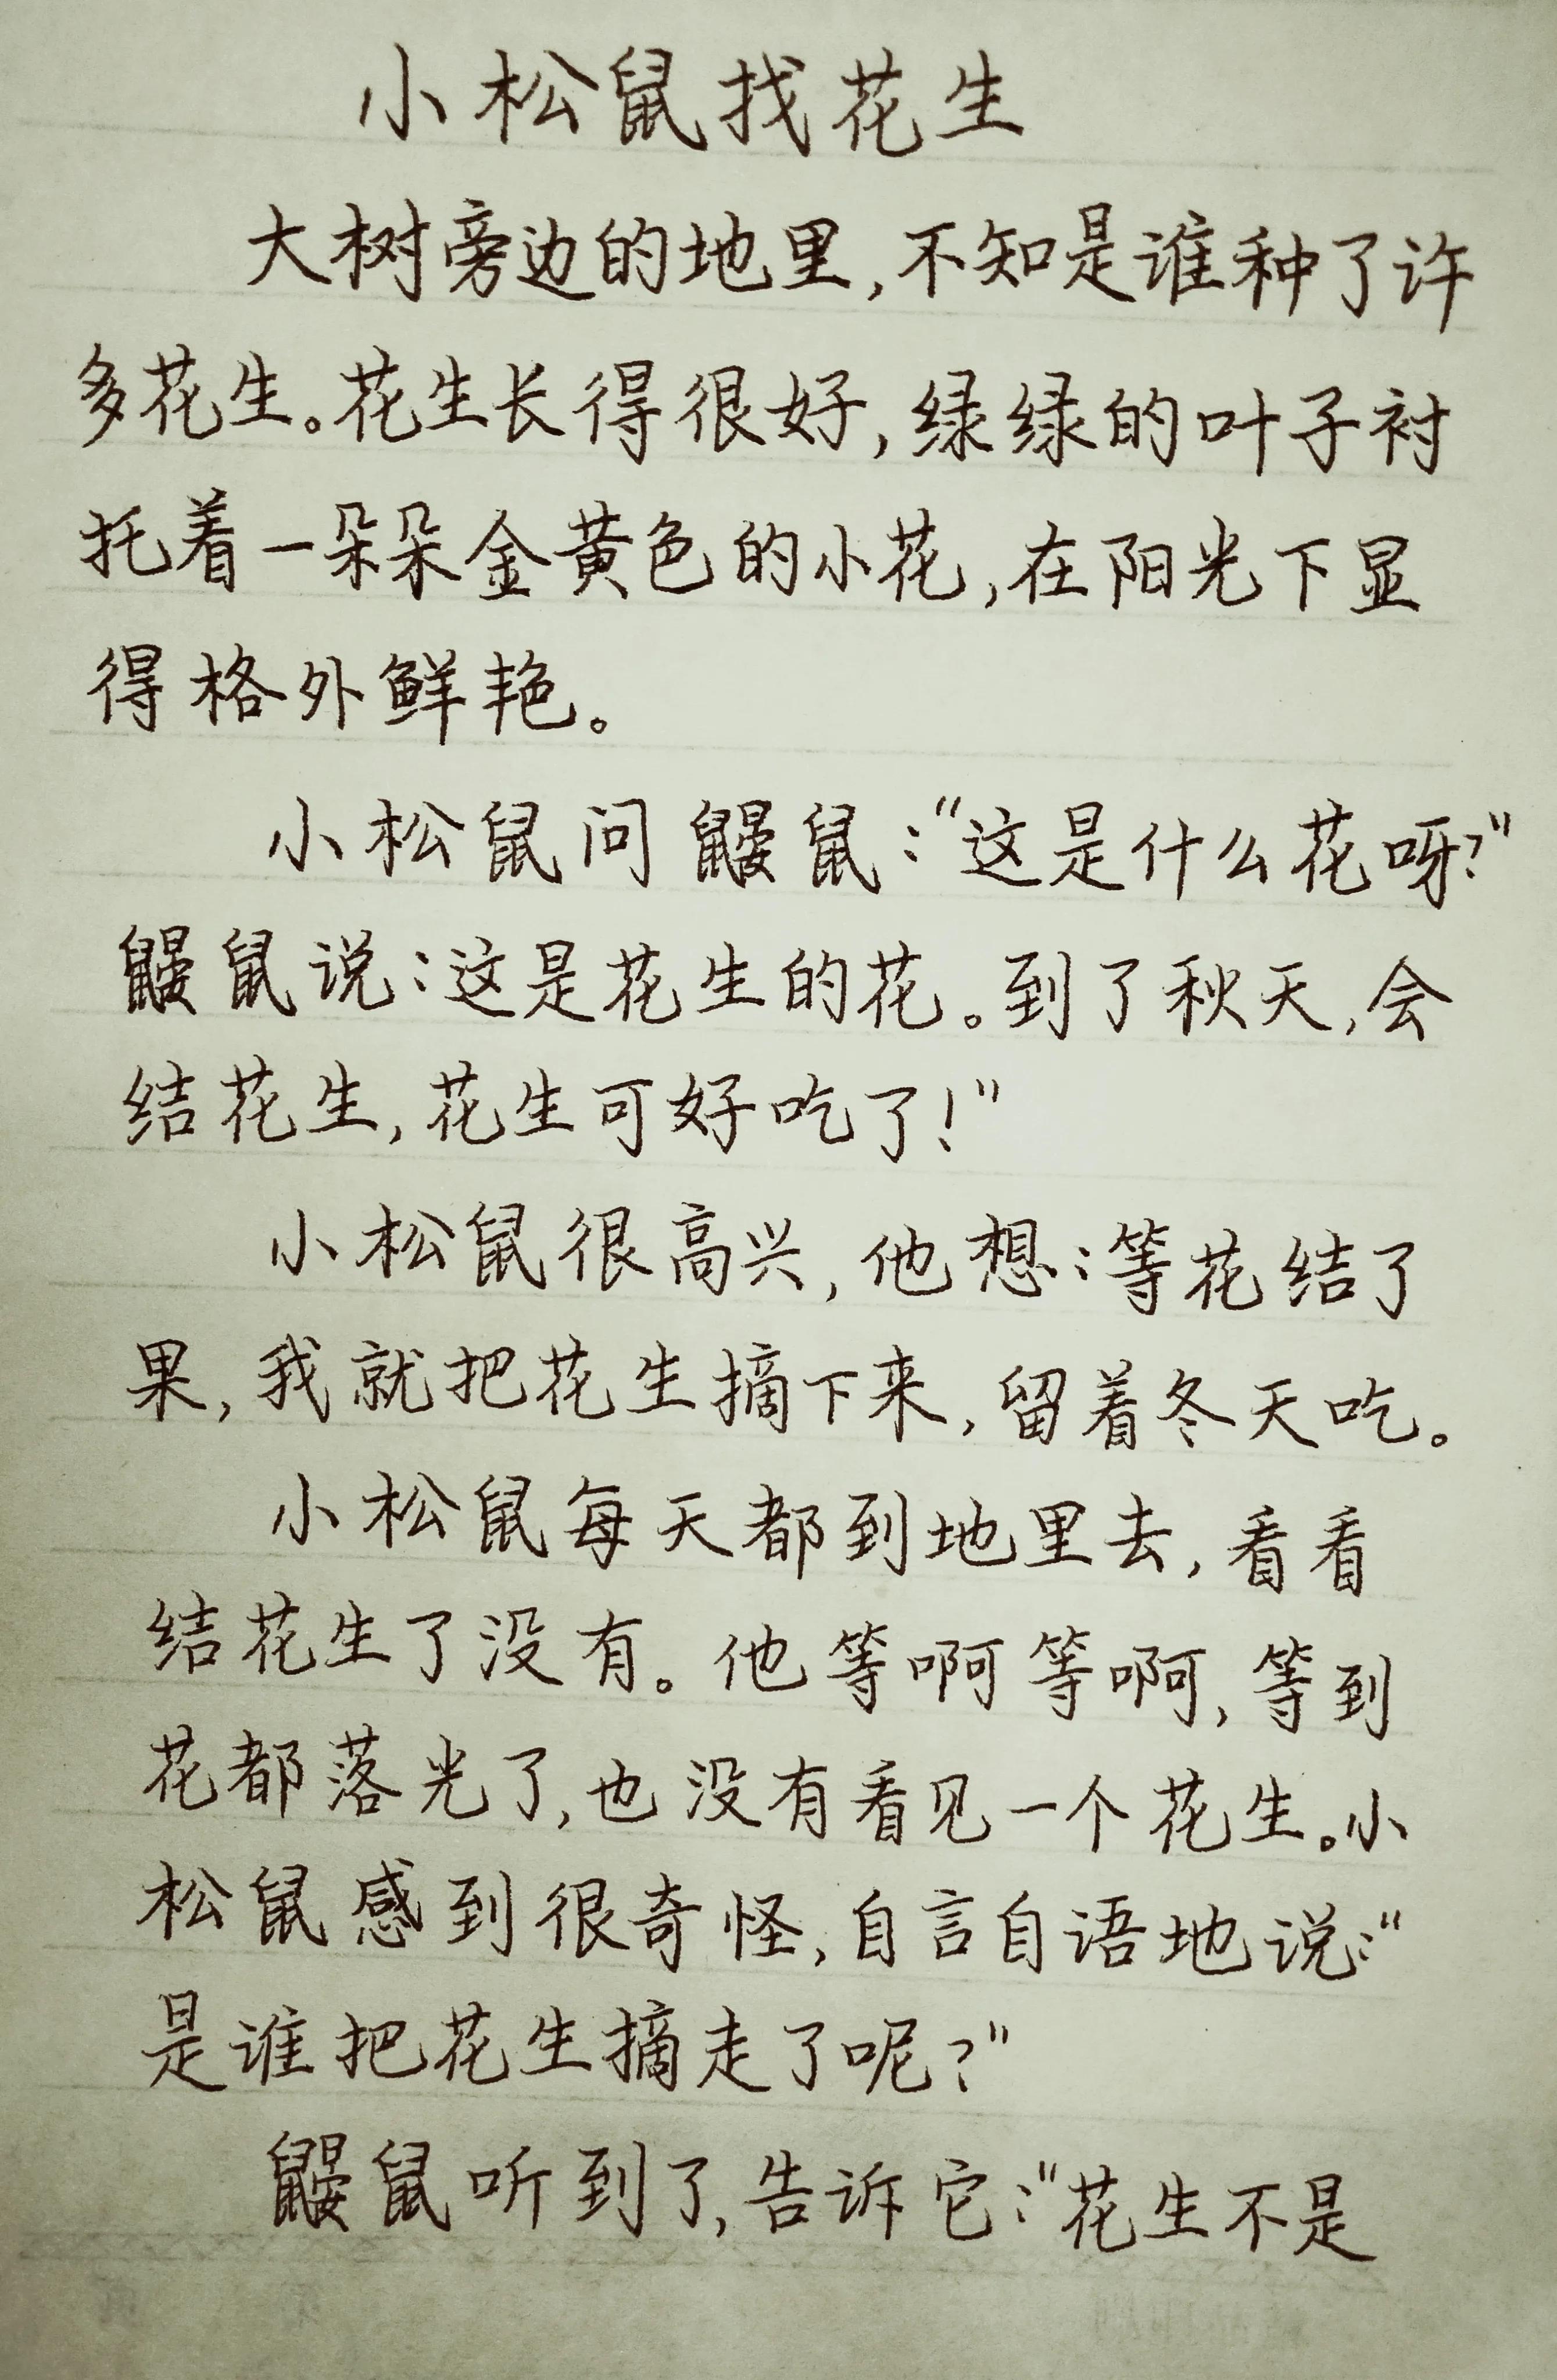 小松鼠找花生
大树旁边的地里,不知是谁种了许
多花生。花生长得很好,绿绿的叶子衬
托着一朵朵金黄色的小花,在阳光下显
得格外鲜艳。
小松鼠问鼹鼠:“这是什么花呀?”
鼹鼠说:这是花生的花。到了秋天,会
结花生,花生可好吃了!”
小松鼠很高兴,他想:等花结了
果,我就把花生摘下来,留着冬天吃。
小松鼠每天都到地里去,看看
结花生了没有。他等啊等啊,等到
花都落光了,也没有看见一个花生。小
松鼠感到很奇怪,自言自语地说:“
是谁把花生摘走了呢?”
鼹鼠听到了,告诉它:“花生不是